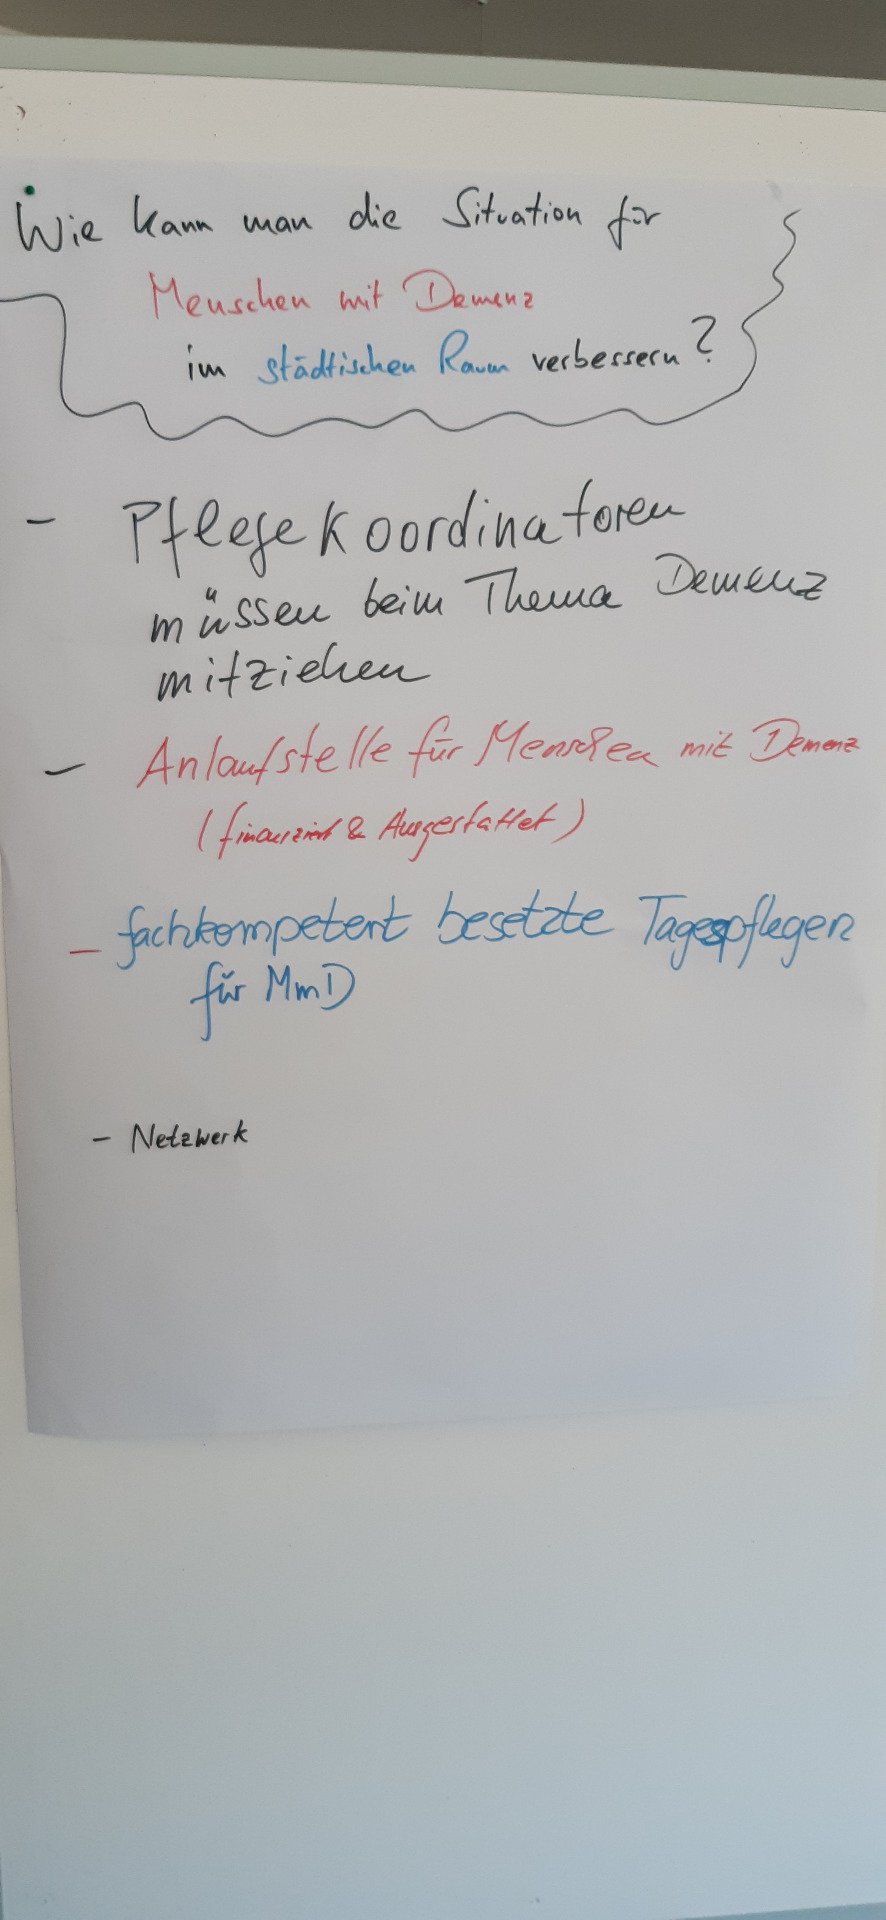 Wie kann man die Situation für
Menschen mit Demenz
im städtischen Raum verbessern?
- Pflegekoordinatoren
müssen beim Thema Demenz
mitziehen
- Anlaufstelle für Menschen mit Demenz
(finanziert & Ausgestattet)
- fachkompetent besetzte Tagespflegen
für MmD
- Netzwerk